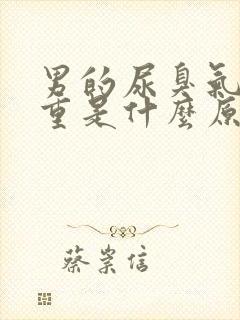 男的尿臭氣
重是什麼原
蔡崇信